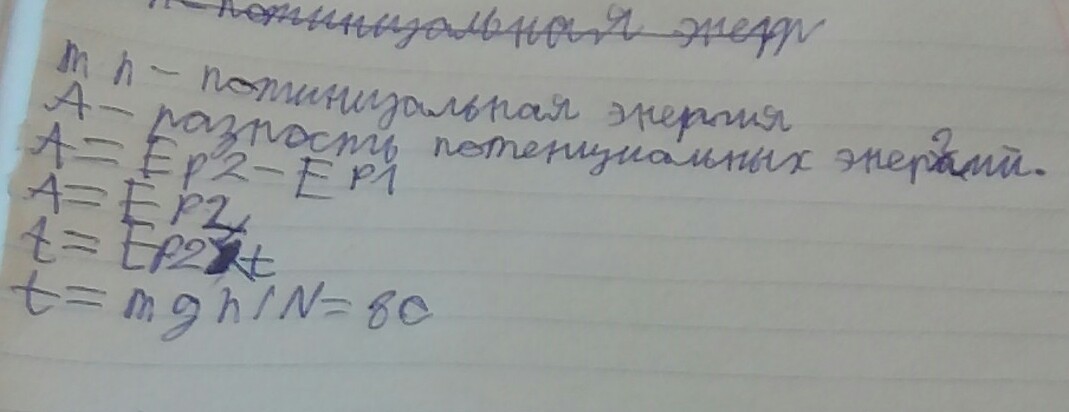 потинизальная энерг
m h - потинизальная энергия
A - разность потенциальных энергий.
A = Ep2 - Ep1
A = Ep2
t = Ep2/t
t = mgh/N = 8с